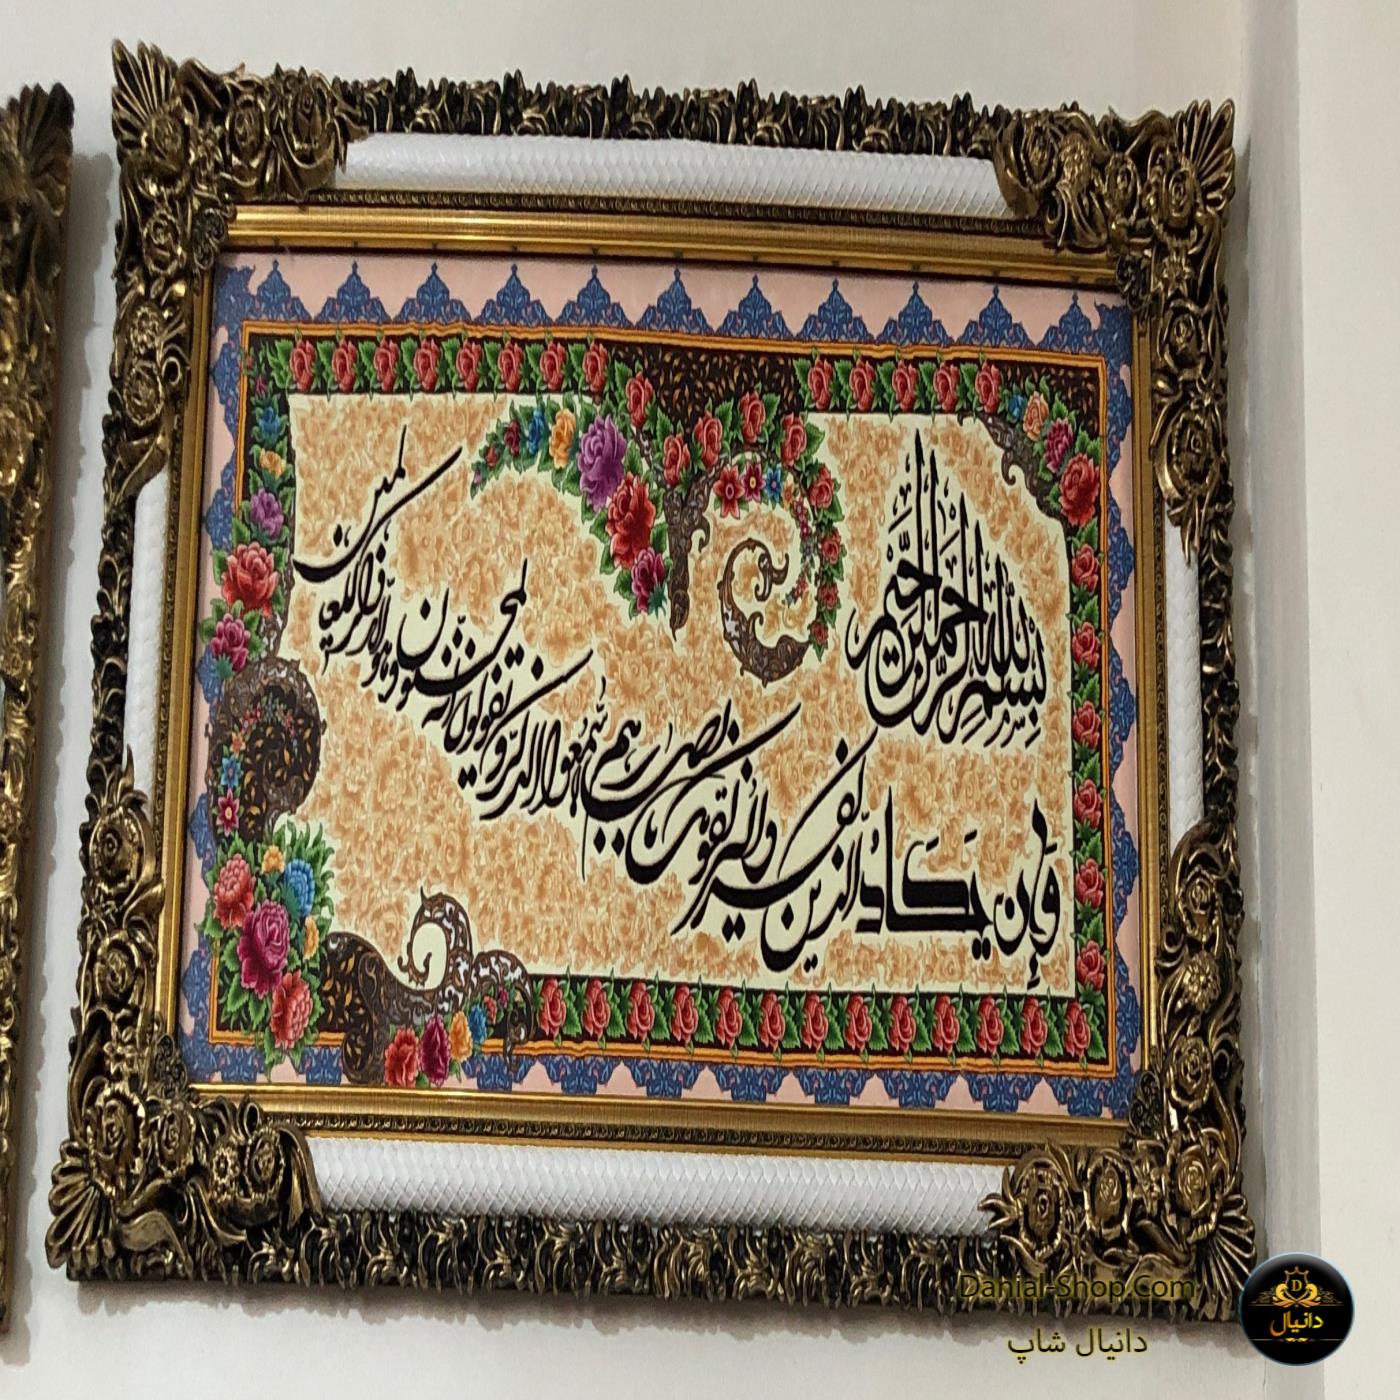 بِسْمِ اللهِ الرَّحْمٰنِ الرَّحِيْمِ
وَإِن يَكَادُ الَّذِينَ كَفَرُوا لَيُزْلِقُونَكَ بِأَبْصَارِهِمْ لَمَّا سَمِعُوا الذِّكْرَ وَيَقُولُونَ إِنَّهُ لَمَجْنُونٌ وَمَا هُوَ إِلَّا ذِكْرٌ لِّلْعَالَمِينَ
Danial-Shop.Com
دانیال شاپ
D
دانیال